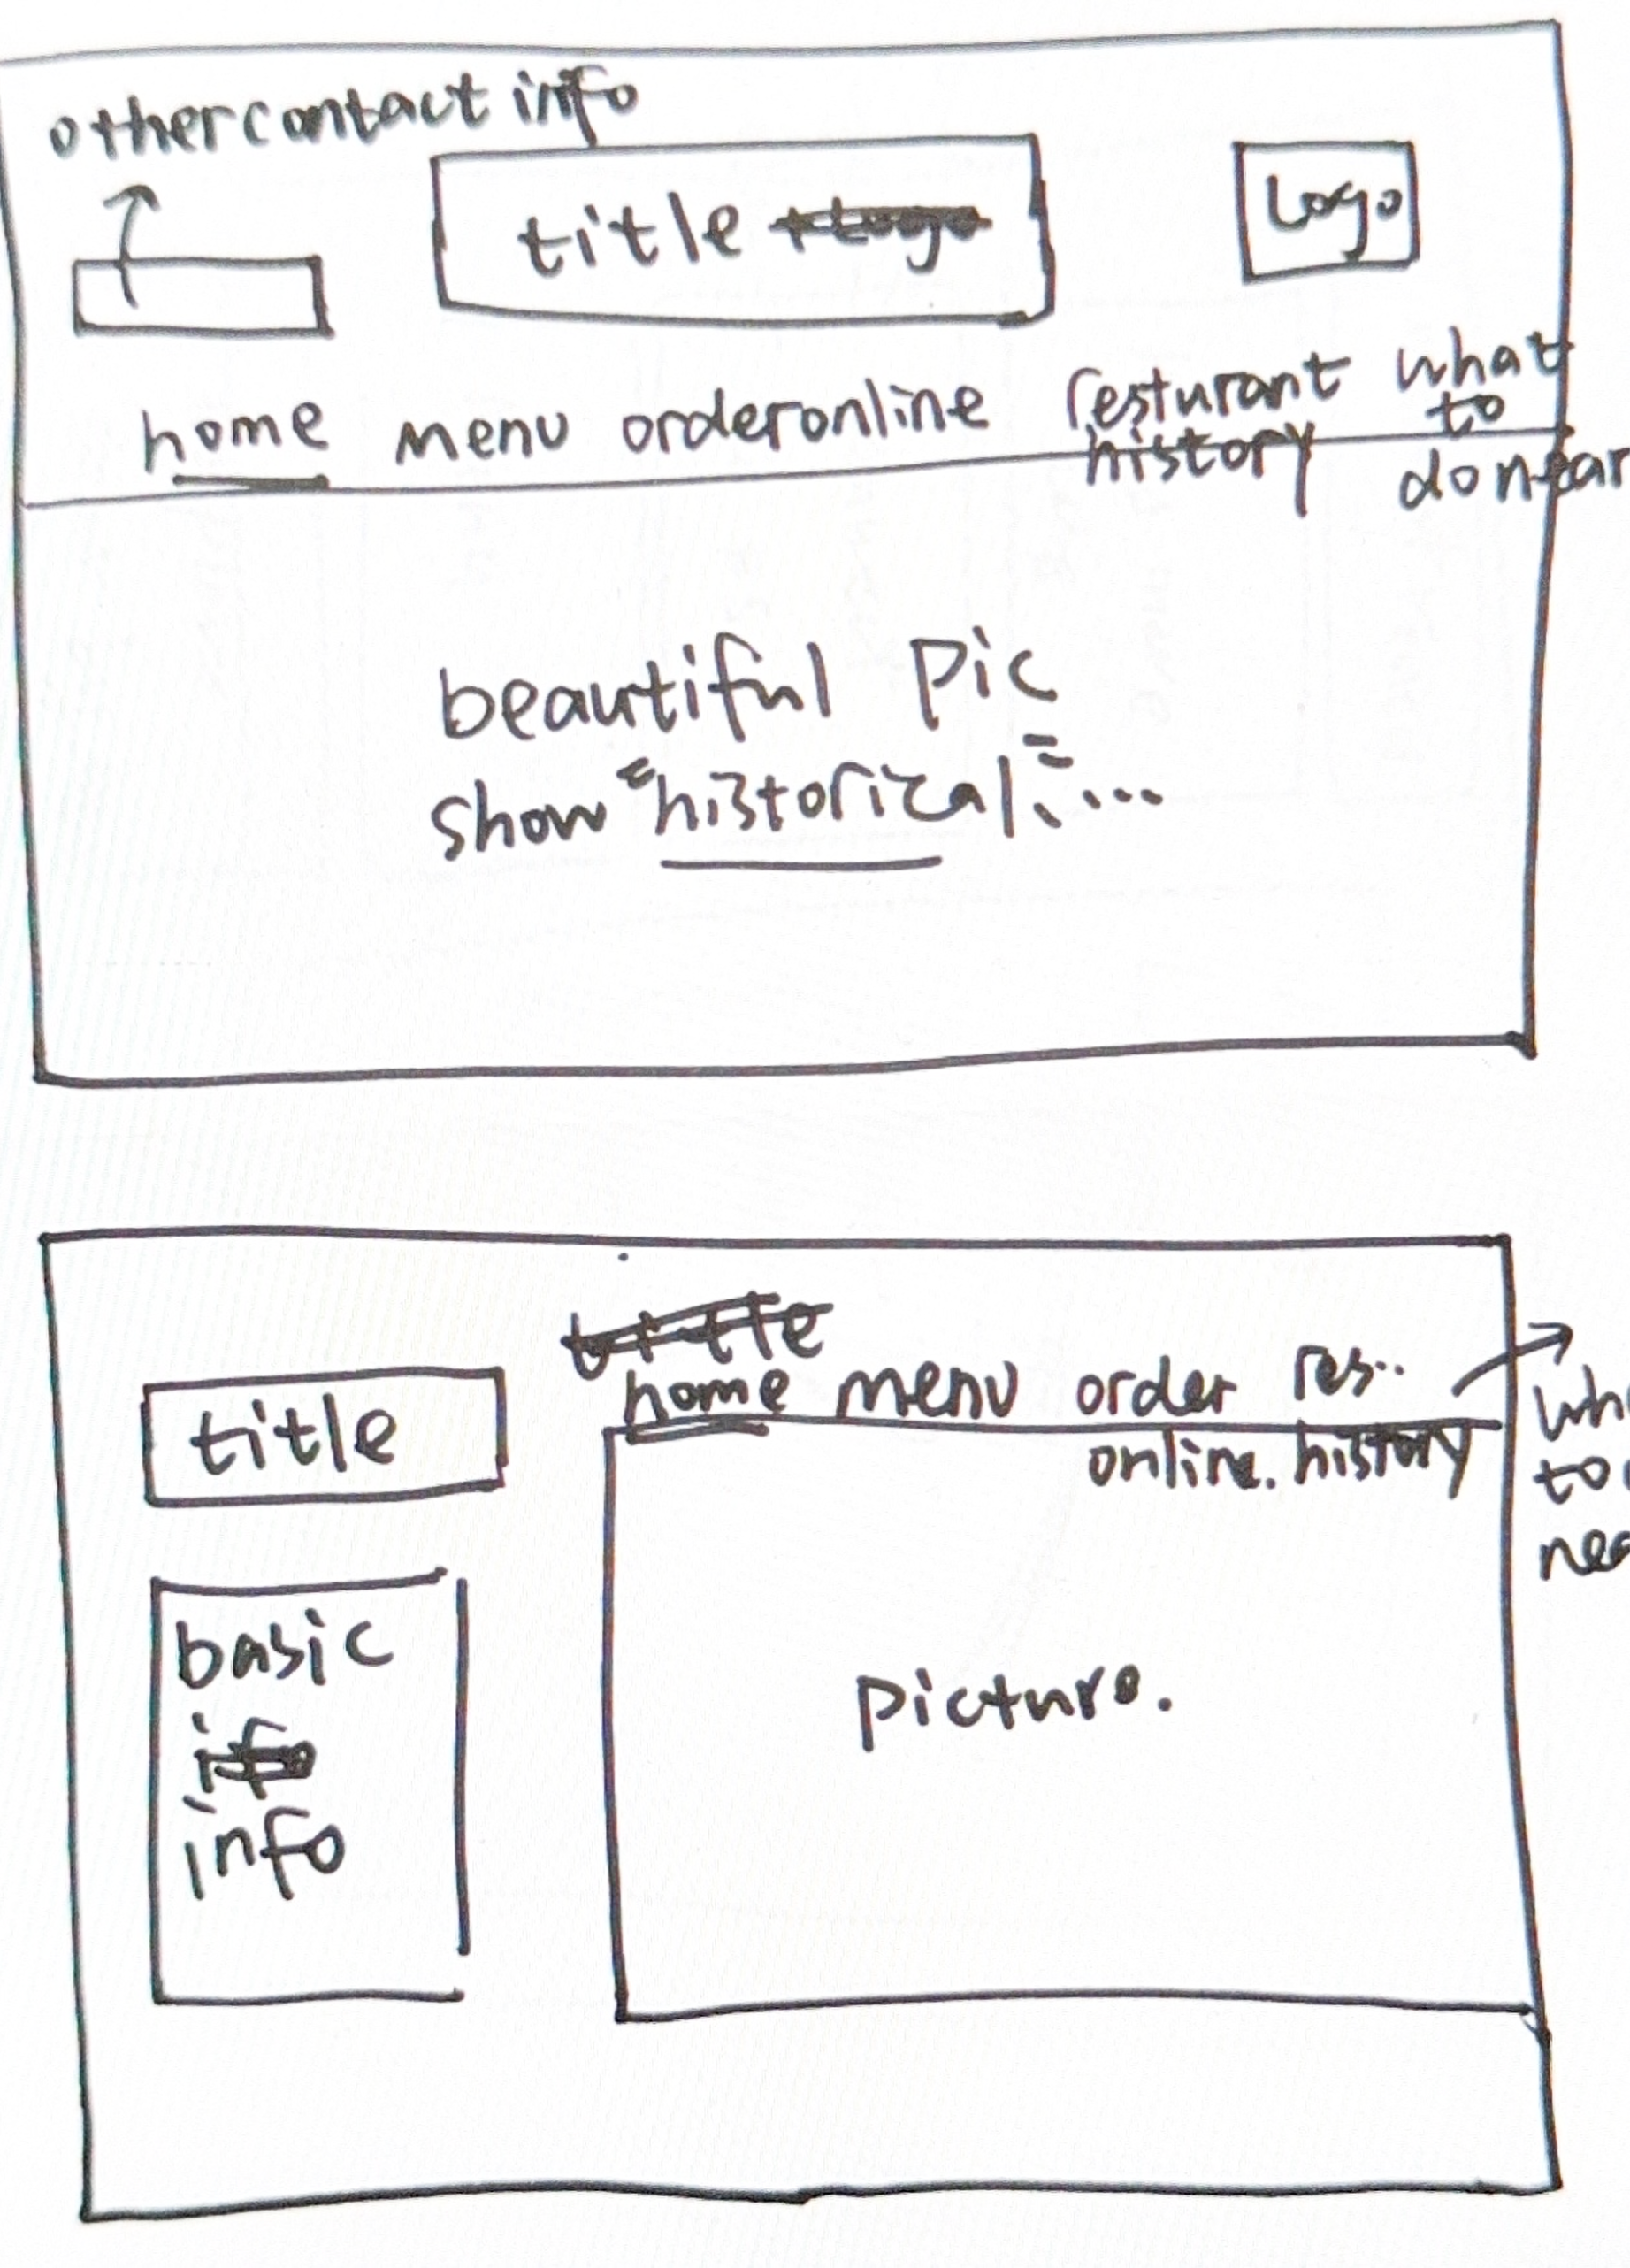 other contact info
title
Logo
home menu orderonline resturant history what to do near
beautiful pic
show "historical" ...
title
home menu order online. res.. history
to
basic
info
picture.